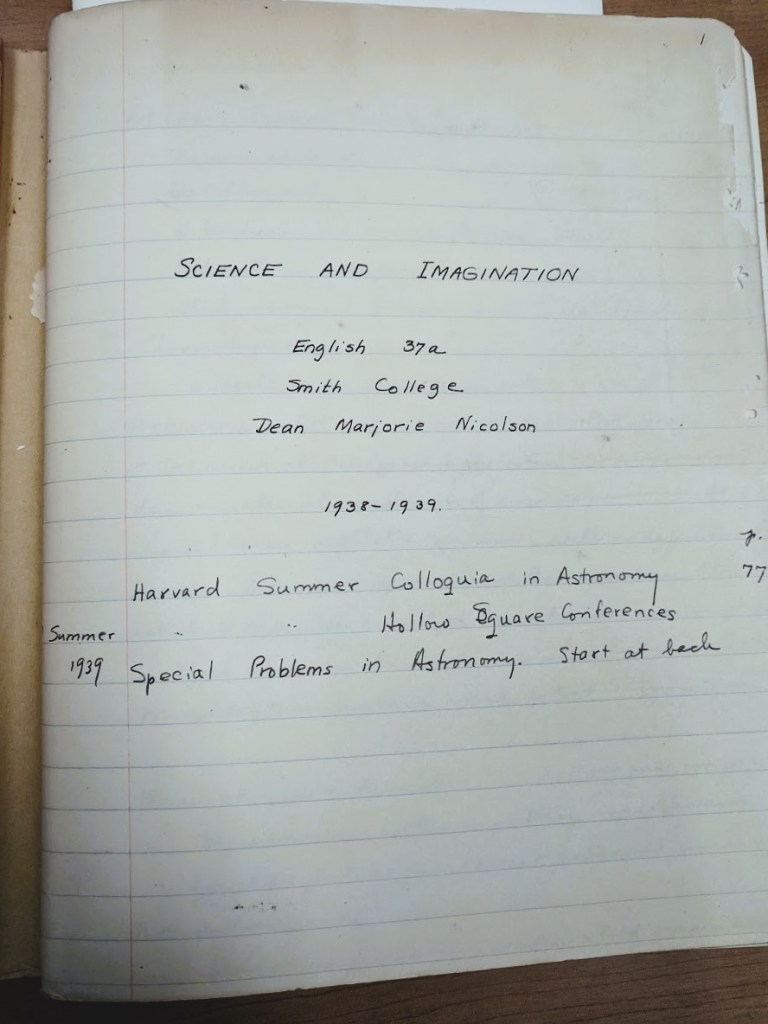 1
SCIENCE AND IMAGINATION
English 37a
Smith College
Dean Marjorie Nicolson
1938-1939.
p.
Harvard Summer Colloquia in Astronomy 77
Summer " " Hollow Square Conferences
1939 Special Problems in Astronomy. Start at back